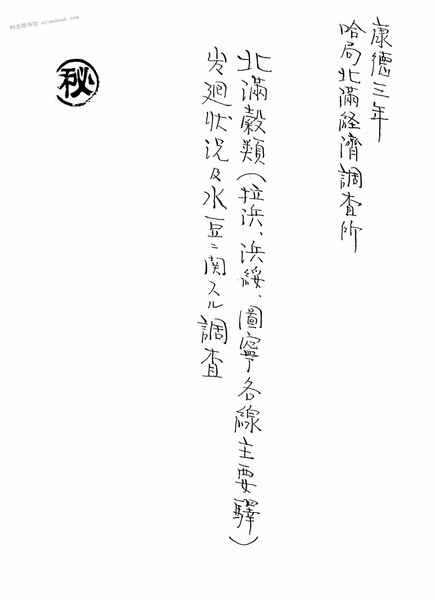 康德三年
哈局北滿経濟調査所
北滿穀類(拉浜、浜綏、圖寧各線主要驛)
出廻狀況及水豆ニ関スル調査
秘